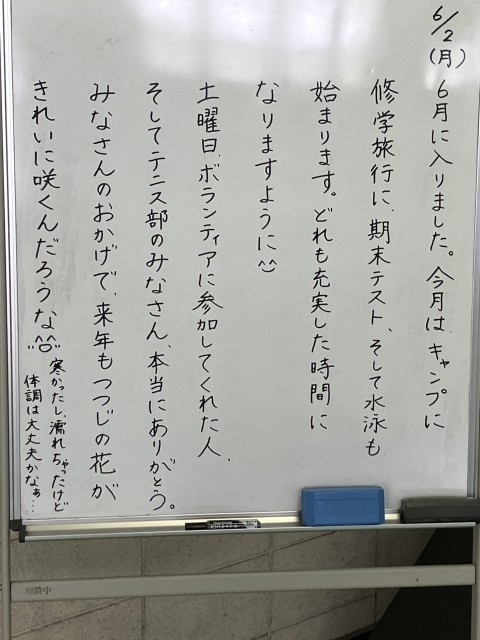 6/2(月)
6月に入りました。今月は、キャンプに
修学旅行に、期末テスト、そして水泳も
始まります。どれも充実した時間に
なりますように^^
土曜日、ボランティアに参加してくれた人、
そしてテニス部のみなさん、本当にありがとう。
みなさんのおかげで、来年もつつじの花が
きれいに咲くんだろうな^^
寒かったし、濡れちゃったけど
体調は大丈夫かなぁ…